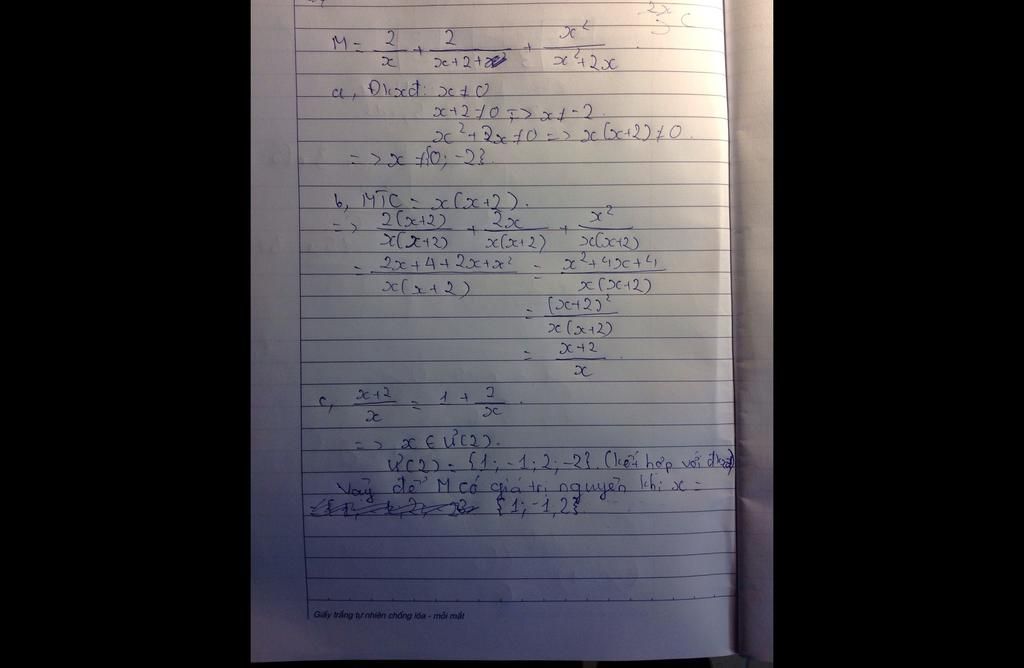 M = 2/x + 2/(x+2) + x²/(x²+2x)
a, Đkxđ: x ≠ 0
x+2 ≠ 0 => x ≠ -2.
x²+2x ≠ 0 => x(x+2) ≠ 0.
=> x ≠ {0; -2}.
b, MTC = x(x+2).
=> 2(x+2)/x(x+2) + 2x/x(x+2) + x²/x(x+2)
= (2x+4+2x+x²)/x(x+2) = (x²+4x+4)/x(x+2)
= (x+2)²/x(x+2)
= (x+2)/x.
c, (x+2)/x = 1 + 2/x.
=> x ∈ Ư(2).
Ư(2) = {1; -1; 2; -2}. (kết hợp với đkxđ)
Vậy để M có giá trị nguyên khi x =
{1; -1, 2}
Giấy trắng tự nhiên chống lóa - mỏi mắt